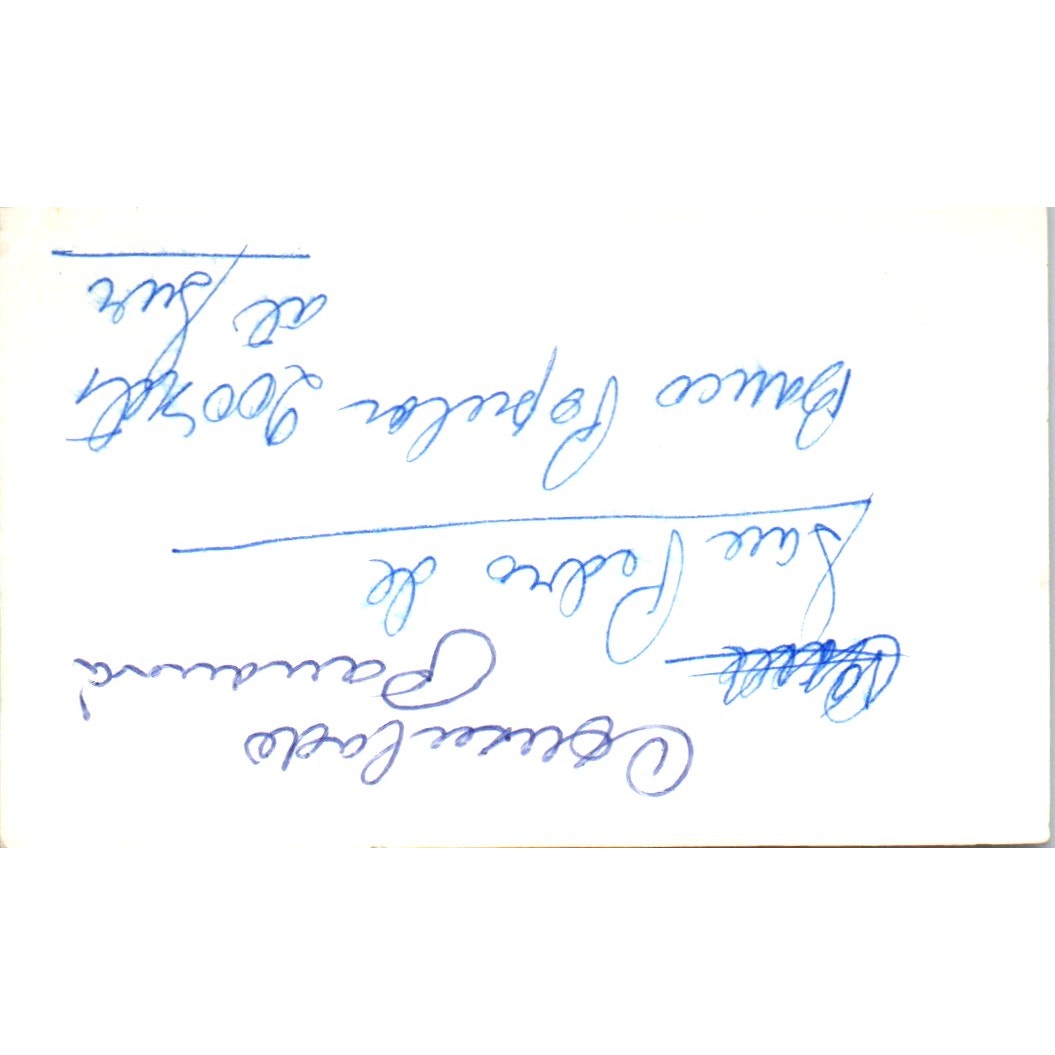 Consulado
Panamá
San Pedro de
Banco Popular 200 mts
al Sur